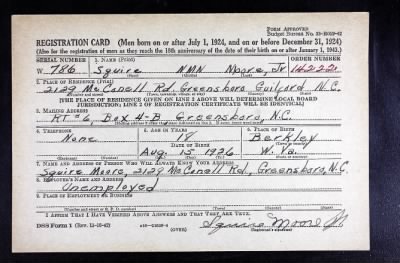 Form Approved
Budget Bureau No. 33-R013-42
REGISTRATION CARD (Men born on or after July 1, 1924, and on or before December 31, 1924)
(Also for the registration of men as they reach the 18th anniversary of the date of their birth on or after January 1, 1943.)
SERIAL NUMBER 1. NAME (Print) ORDER NUMBER
W 786 Squire NMN Moore, Jr. 14222
(First) (Middle) (Last)
2. PLACE OF RESIDENCE (Print)
2129 McConell Rd, Greensboro Guilford N.C.
[THE PLACE OF RESIDENCE GIVEN ON LINE 2 ABOVE WILL DETERMINE LOCAL BOARD
JURISDICTION; LINE 2 OF REGISTRATION CERTIFICATE WILL BE IDENTICAL]
3. MAILING ADDRESS
RT #6, Box 4-B Greensboro, N.C.
4. TELEPHONE 5. AGE IN YEARS 6. PLACE OF BIRTH
None 18 Berkley
DATE OF BIRTH
Aug. 15 1926 W. Va.
(Exchange) (Number) (Mo.) (Day) (Yr.) (State or country)
7. NAME AND ADDRESS OF PERSON WHO WILL ALWAYS KNOW YOUR ADDRESS
Squire Moore, 2129 McConell Rd, Greensboro, N.C.
8. EMPLOYER'S NAME AND ADDRESS
Unemployed
9. PLACE OF EMPLOYMENT OR BUSINESS
(Number and street or R. F. D. number) (Town) (County) (State)
I AFFIRM THAT I HAVE VERIFIED ABOVE ANSWERS AND THAT THEY ARE TRUE.
DSS Form 1 (Rev. 11-16-42) (OVER) Squire Moore Jr.
(Registrant's signature)